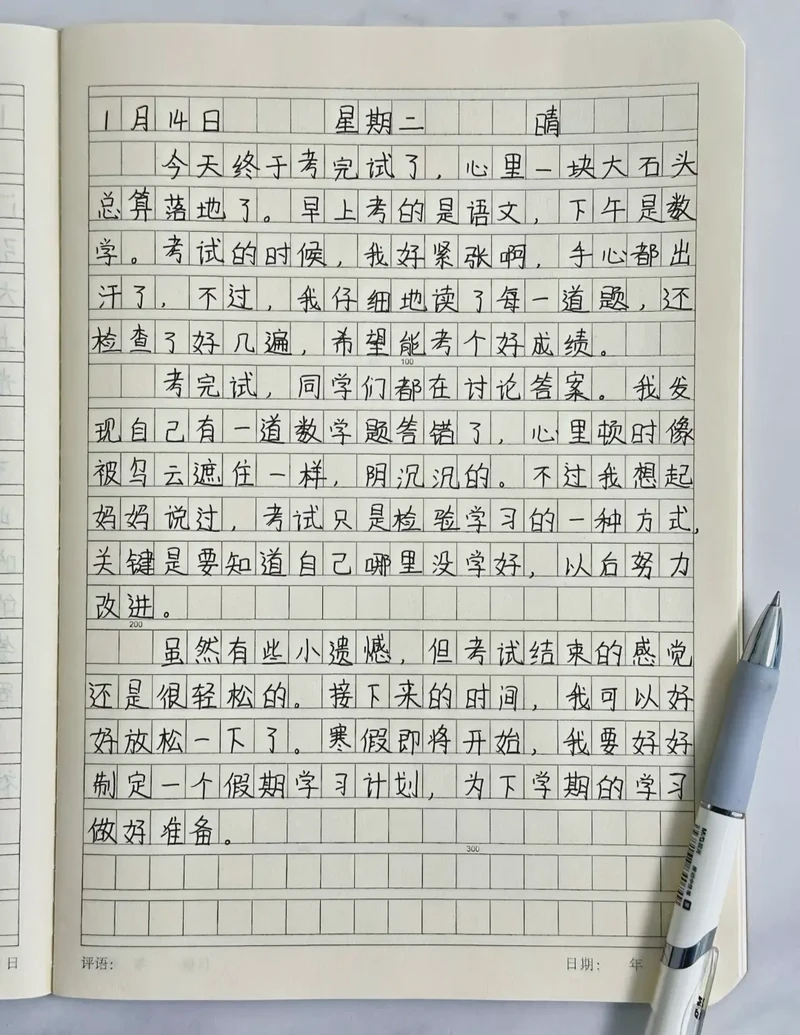 1月14日 星期二 晴
今天终于考完试了，心里一块大石头
总算落地了。早上考的是语文，下午是数
学。考试的时候，我好紧张啊，手心都出
汗了，不过，我仔细地读了每一道题，还
检查了好几遍，希望能考个好成绩。
100
考完试，同学们都在讨论答案。我发
现自己有一道数学题答错了，心里顿时像
被乌云遮住一样，阴沉沉的。不过我想起
妈妈说过，考试只是检验学习的一种方式，
关键是要知道自己哪里没学好，以后努力
改进。
200
虽然有些小遗憾，但考试结束的感觉
还是很轻松的。接下来的时间，我可以好
好放松一下了。寒假即将开始，我要好好
制定一个假期学习计划，为下学期的学习
做好准备。
300
日 评语： 日期： 年